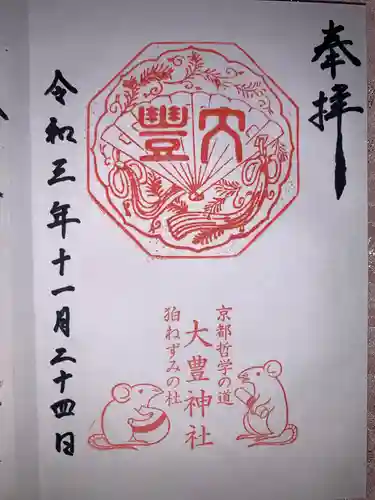 奉拝
大豐
京都哲学の道
大豊神社
狛ねずみの社
令和三年十一月二十四日